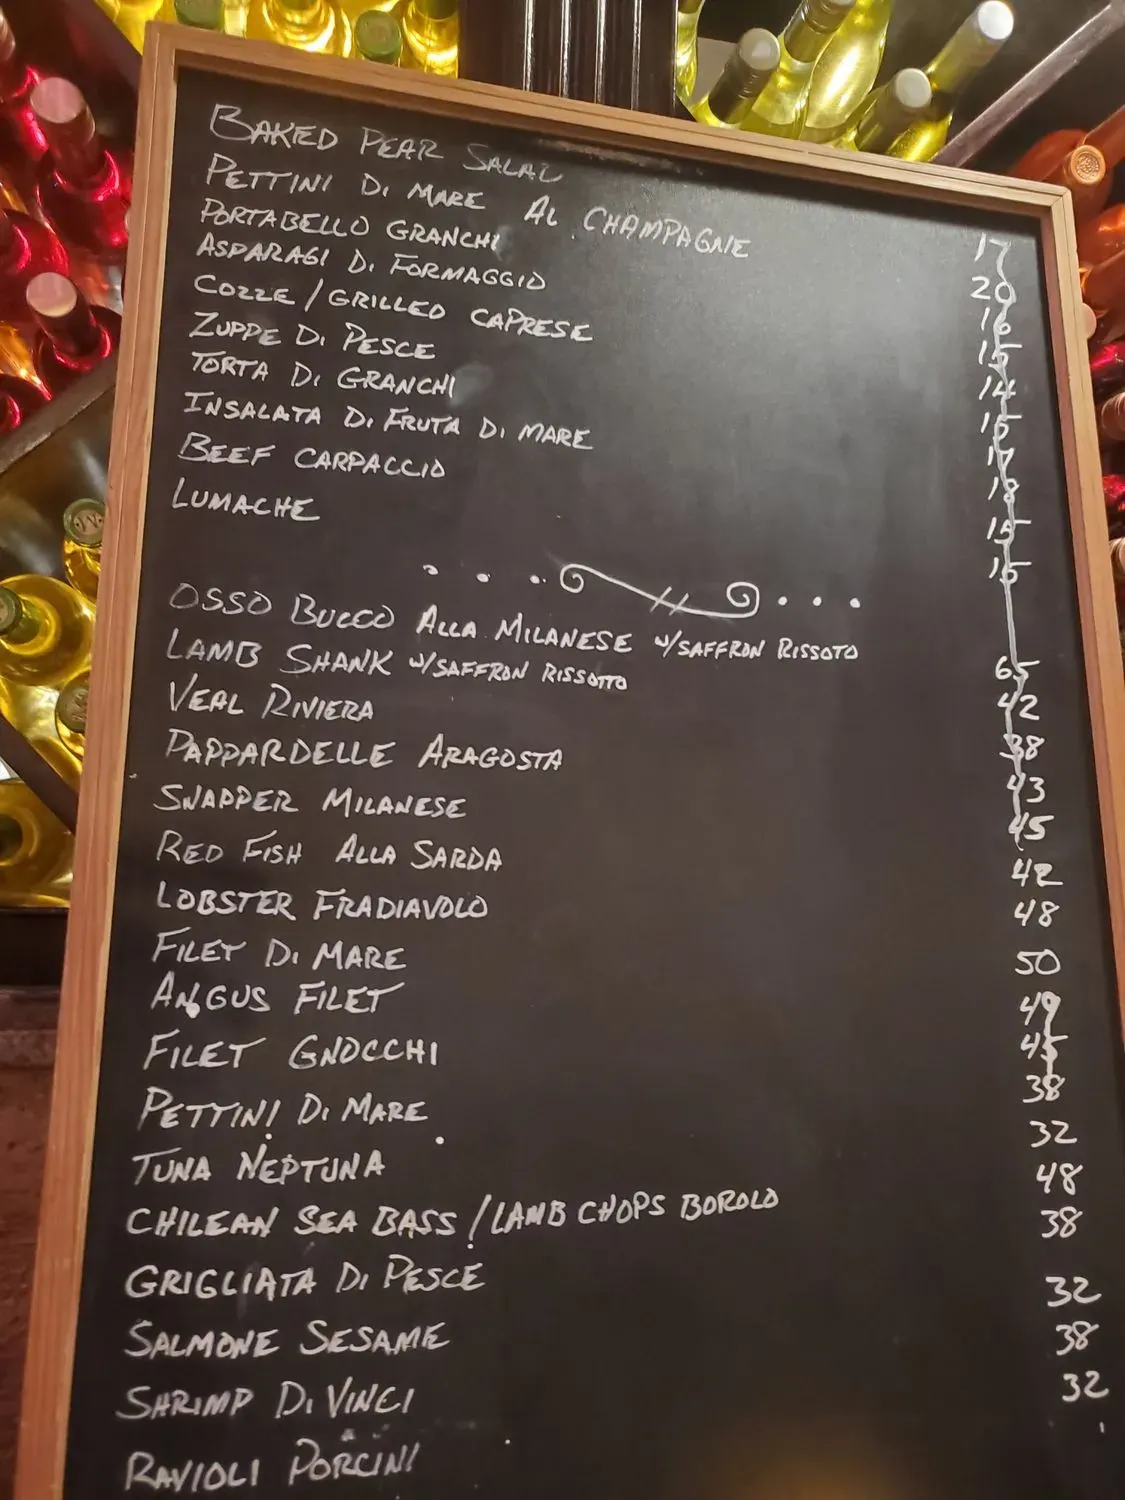 BAKED PEAR SALAD 17
PETTINI DI MARE AL CHAMPAGNE 20
PORTABELLO GRANCHI 16
ASPARAGI DI FORMAGGIO 15
COZZE / GRILLED CAPRESE 14
ZUPPE DI PESCE 15
TORTA DI GRANCHI 17
INSALATA DI FRUTA DI MARE 18
BEEF CARPACCIO 15
LUMACHE 15
OSSO BUCCO ALLA MILANESE W/SAFFRON RISSOTO 65
LAMB SHANK W/SAFFRON RISSOTTO 42
VEAL RIVIERA 38
PAPPARDELLE ARAGOSTA 43
SNAPPER MILANESE 45
RED FISH ALLA SARDA 42
LOBSTER FRADIAVOLO 48
FILET DI MARE 50
ANGUS FILET 49
FILET GNOCCHI 45
PETTINI DI MARE 38
TUNA NEPTUNA 32
CHILEAN SEA BASS / LAMB CHOPS BOROLO 48
GRIGLIATA DI PESCE 38
SALMONE SESAME 32
SHRIMP DI VINCI 38
RAVIOLI PORCINI 32